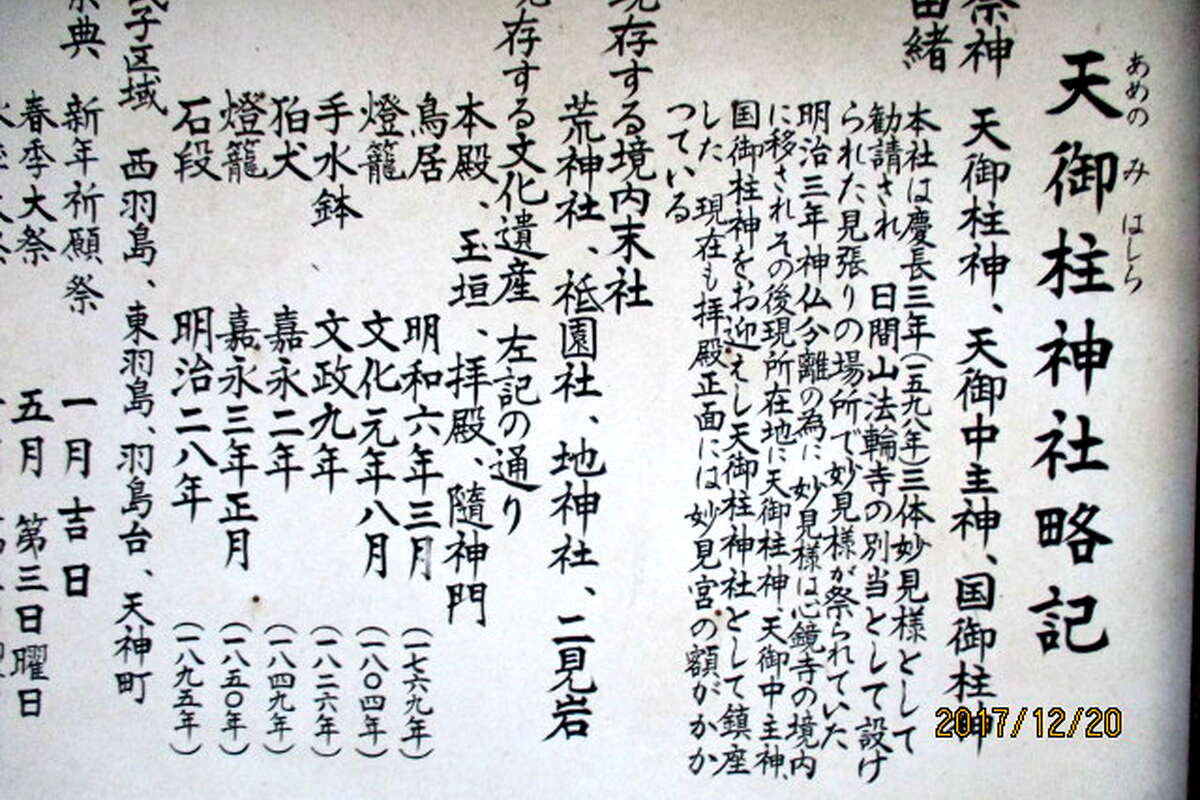 天御柱神社略記
あめの み はしら
祭神 天御柱神、天御中主神、国御柱神
由緒
本社は慶長三年(一五九八年)三体妙見様として
勧請され 日間山法輪寺の別当として設け
られた見張りの場所で妙見様が祭られていた
明治三年神仏分離の為に 妙見様は心鏡寺の境内
に移されその後現所在地に天御柱神、天御中主神、
国御柱神をお迎えし天御柱神社として鎮座
した 現在も拝殿正面には妙見宮の額がかか
つている
現存する境内末社
荒神社、祗園社、地神社、二見岩
現存する文化遺産 左記の通り
本殿、玉垣、拝殿、隨神門
鳥居 明和六年三月 (一七六九年)
燈籠 文化元年八月 (一八〇四年)
手水鉢 文政九年 (一八二六年)
狛犬 嘉永二年 (一八四九年)
燈籠 嘉永三年正月 (一八五〇年)
石段 明治二八年 (一八九五年)
氏子区域 西羽島、東羽島、羽島台、天神町
祭典 新年祈願祭 一月吉日
春季大祭 五月 第三日曜日
2017/12/20